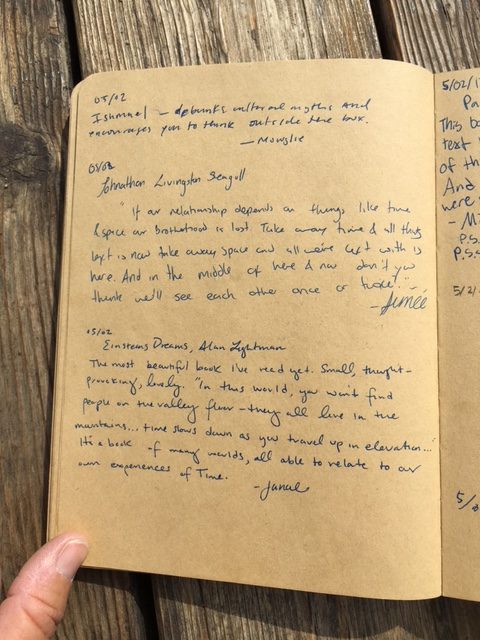 05/02
Ishmael - debunks cultural myths and
encourages you to think outside the box.
- Mowglie
05/02
Johnathan Livingston Seagull
"If our relationship depends on things like time
& space our brotherhood is lost. Take away time & all that's
left is now take away space and all we're left with is
here. And in the middle of here & now don't you
think we'll see each other once or twice?"
- Aimée
05/02
Einsteins Dreams, Alan Lightman
The most beautiful book I've read yet. Small, thought-
provoking, lovely. "In this world, you won't find
people on the valley floor - they all live in the
mountains... time slows down as you travel up in elevation..."
It's a book of many worlds, all able to relate to our
own experiences of Time.
5/02/1
Pa
This bo
text
of th
And
were
- M
P.S.
P.S.S
5/2
5/